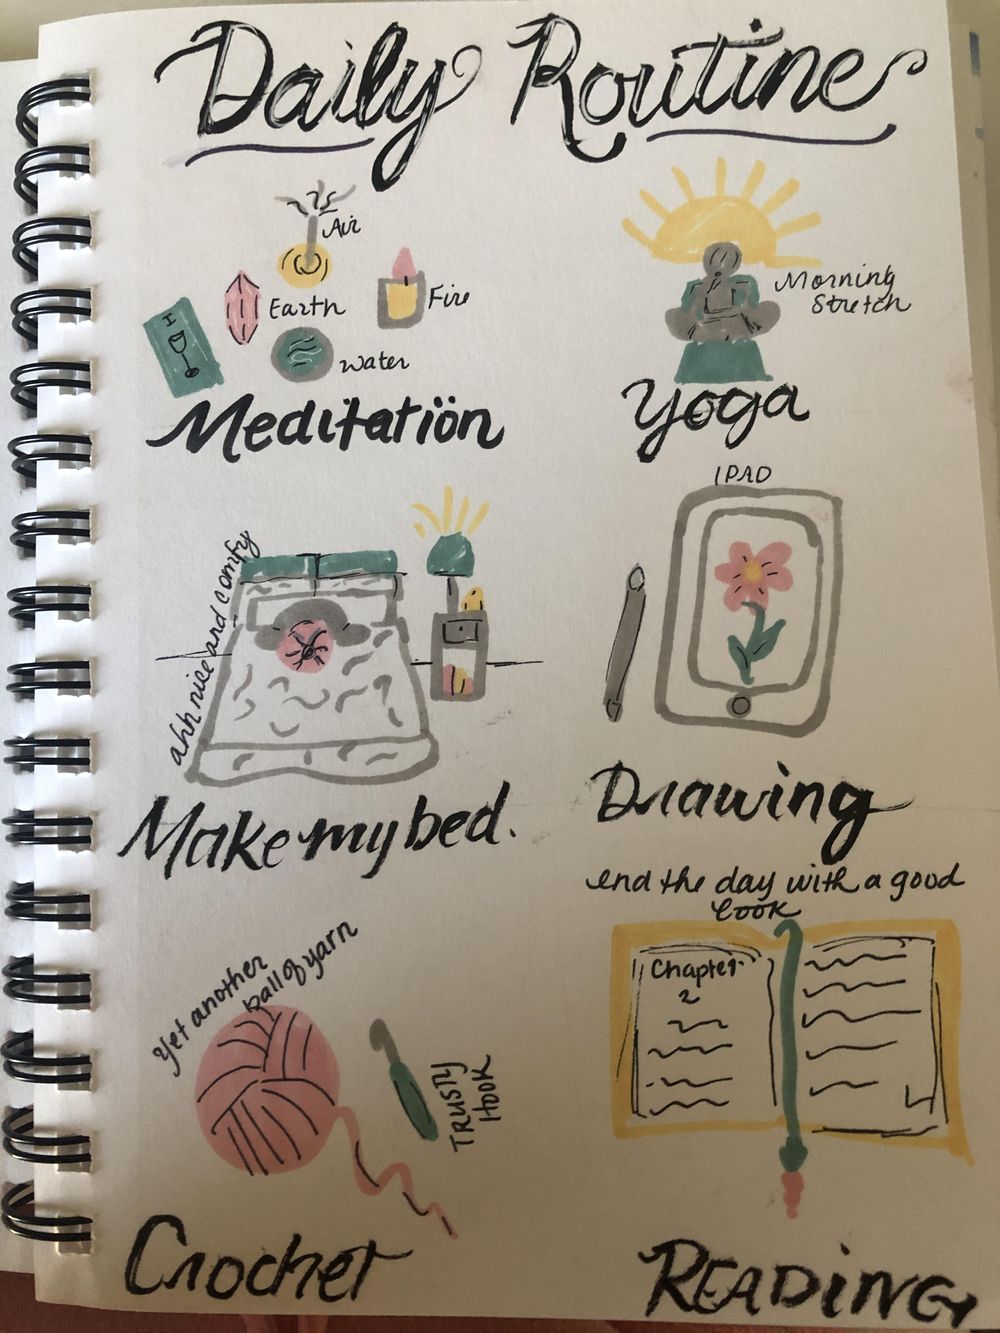 Daily Routine
Air
Earth
Fire
Water
I
Meditatiön
Morning
Stretch
Yoga
ahh nice and comfy
Make my bed.
IPAD
Drawing
Yet another
ball of yarn
TRUSTY
HOOK
Crochet
end the day with a good
book
Chapter
2
READING